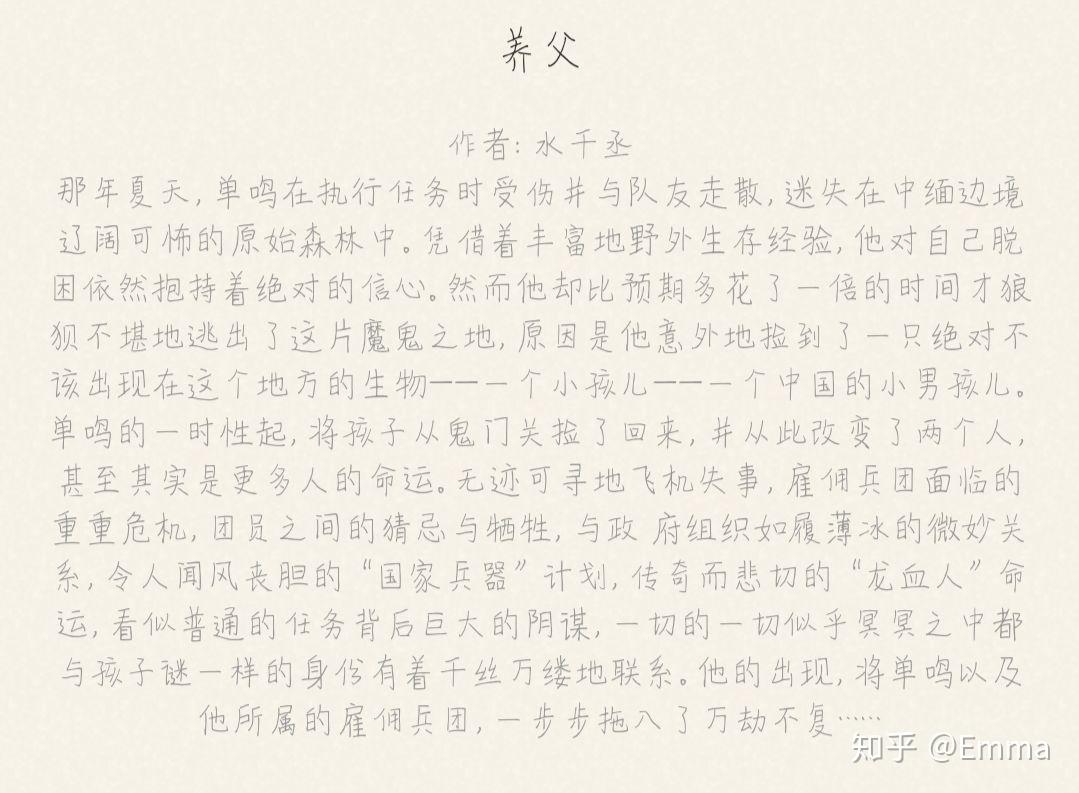 养父
作者:水千丞
那年夏天,单鸣在执行任务时受伤并与队友走散,迷失在中缅边境
辽阔可怖的原始森林中。凭借着丰富地野外生存经验,他对自己脱
困依然抱持着绝对的信心。然而他却比预期多花了一倍的时间才狼
狈不堪地逃出了这片魔鬼之地,原因是他意外地捡到了一只绝对不
该出现在这个地方的生物——一个小孩儿——一个中国的小男孩儿。
单鸣的一时性起,将孩子从鬼门关捡了回来,并从此改变了两个人,
甚至其实是更多人的命运。无迹可寻地飞机失事,雇佣兵团面临的
重重危机,团员之间的猜忌与牺牲,与政 府组织如履薄冰的微妙关
系,令人闻风丧胆的“国家兵器”计划,传奇而悲切的“龙血人”命
运,看似普通的任务背后巨大的阴谋,一切的一切似乎冥冥之中都
与孩子谜一样的身份有着千丝万缕地联系。他的出现,将单鸣以及
他所属的雇佣兵团,一步步拖入了万劫不复……
知乎 @Emma